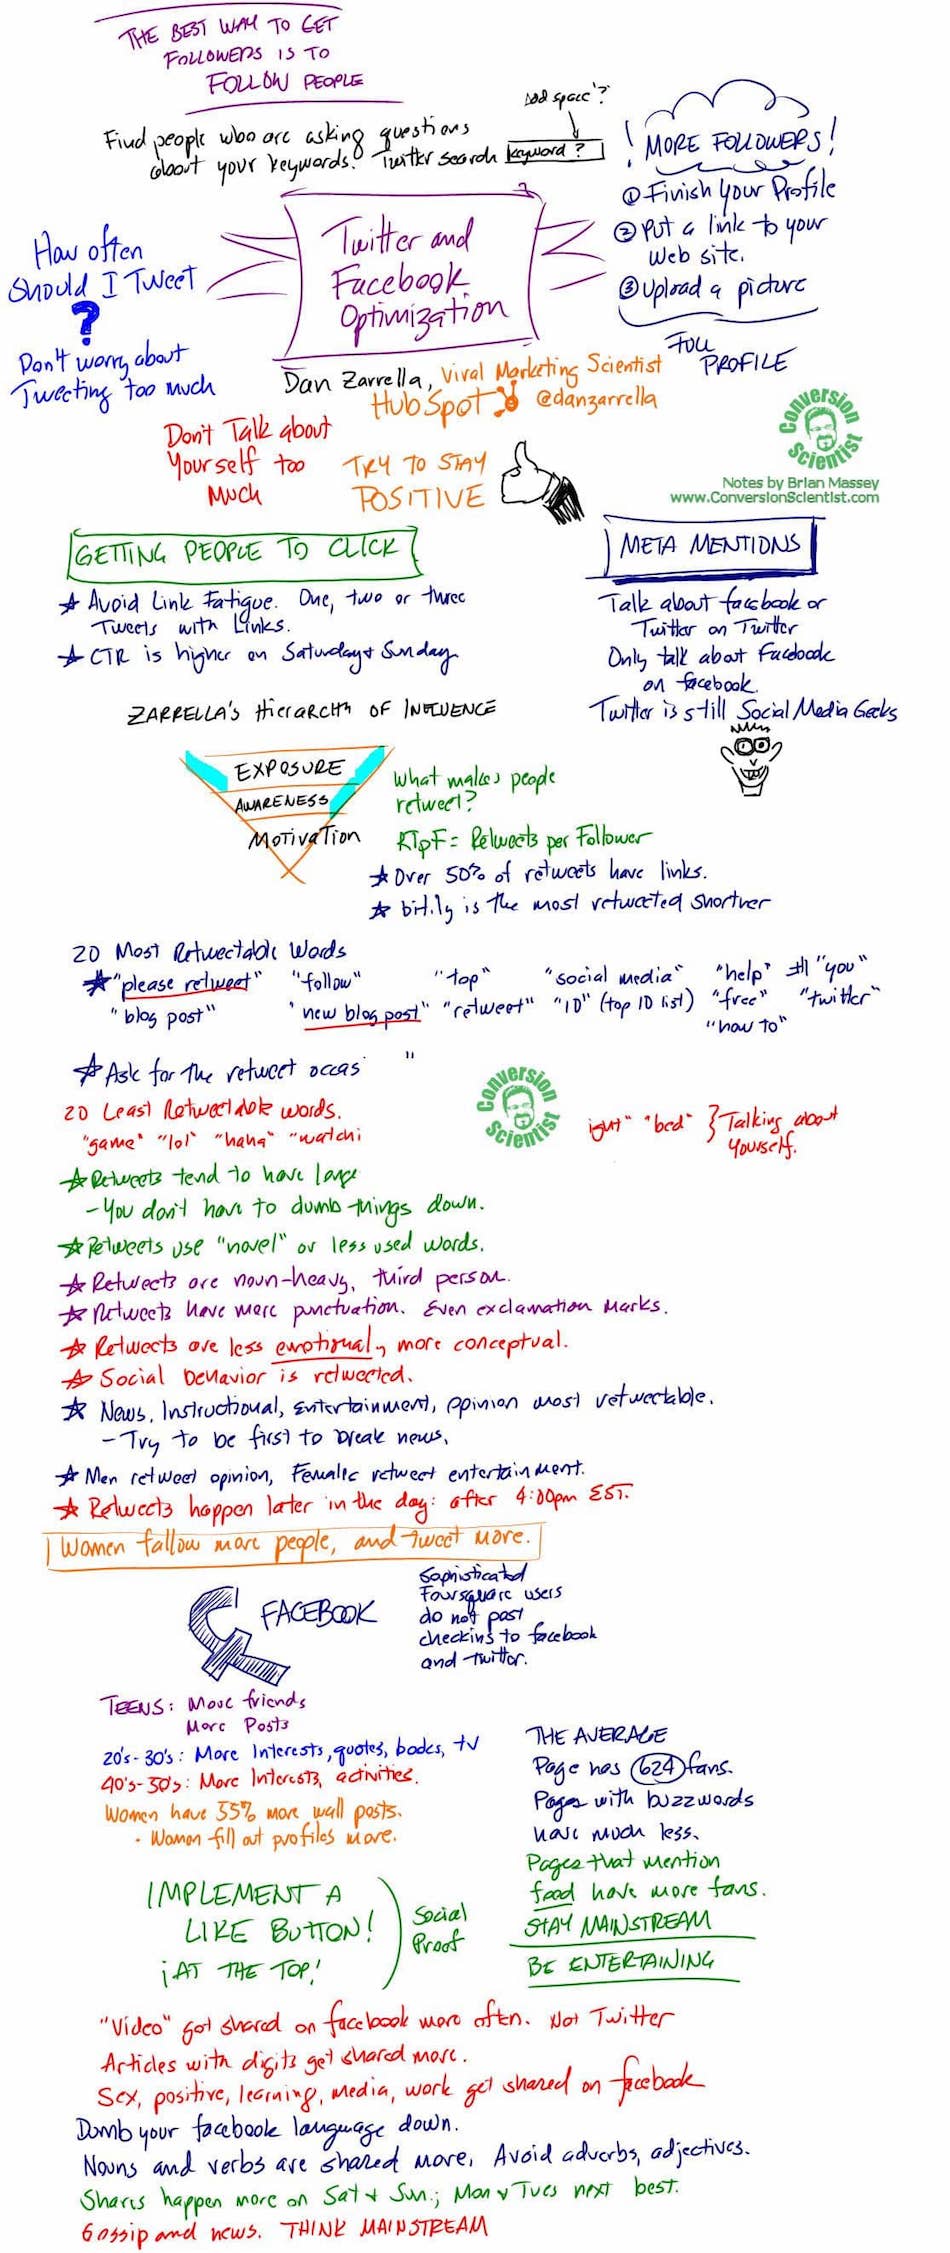 THE BEST WAY TO GET
FOLLOWERS IS TO
FOLLOW PEOPLE
Find people who are asking questions
about your keywords. Twitter search keyword ?
add space?
! MORE FOLLOWERS !
① Finish your Profile
② Put a link to your
Web site.
③ Upload a picture
FULL
PROFILE
How often
Should I Tweet
?
Don't worry about
Tweeting too much
Twitter and
Facebook
Optimization
Dan Zarrella, Viral Marketing Scientist
HubSpot @danzarrella
Conversion
Scientist
Notes by Brian Massey
www.ConversionScientist.com
Don't Talk about
Yourself too
Much
TRY TO STAY
POSITIVE
GETTING PEOPLE TO CLICK
Avoid Link Fatigue. One, two or three
Tweets with Links.
CTR is higher on Saturday & Sunday
META MENTIONS
Talk about facebook or
Twitter on Twitter
Only talk about Facebook
on facebook.
Twitter is still Social Media Geeks
ZARRELLA'S HiErARCHY OF INFLUENCE
EXPOSURE
AWARENESS
MOTIVATION
What makes people
retweet?
RTpF = Retweets per Follower
Over 50% of retweets have links.
bit.ly is the most retweeted shortner
20 Most Retweetable Words
"please retweet" "follow" "top" "social media" "help" #1 "you"
"blog post" "new blog post" "retweet" "10" (top 10 list) "free" "twitter"
"how to"
Ask for the retweet occas "
20 Least Retweetable words.
"game" "lol" "haha" "watchi
ight" "bed" } Talking about
yourself.
Conversion
Scientist
Retweets tend to have large
- You don't have to dumb things down.
Retweets use "novel" or less used words.
Retweets are noun-heavy, third person.
Retweets have more punctuation. Even exclamation marks.
Retweets are less emotional, more conceptual.
Social behavior is retweeted.
News, Instructional, Entertainment, opinion most retweetable.
- Try to be first to break news.
Men retweet opinion, Female retweet entertainment.
Retweets happen later in the day: after 4:00pm EST.
Women follow more people, and tweet more.
FACEBOOK
Sophisticated
Foursquare users
do not post
checkins to facebook
and twitter.
TEENS: More friends
More Posts
20's-30's: More Interests, quotes, books, tv
40's-50's: More Interests, activities.
Women have 55% more wall posts.
· Women fill out profiles more.
THE AVERAGE
Page has 624 fans.
Pages with buzzwords
have much less.
Pages that mention
food have more fans.
STAY MAINSTREAM
BE ENTERTAINING
IMPLEMENT A
LIKE BUTTON!
¡AT THE TOP!
Social
Proof
"Video" got shared on facebook more often. Not Twitter
Articles with digits get shared more.
Sex, positive, learning, media, work get shared on facebook
Dumb your facebook language down.
Nouns and verbs are shared more. Avoid adverbs, adjectives.
Shares happen more on Sat & Sun.; Mon & Tues next best.
Gossip and news. THINK MAINSTREAM